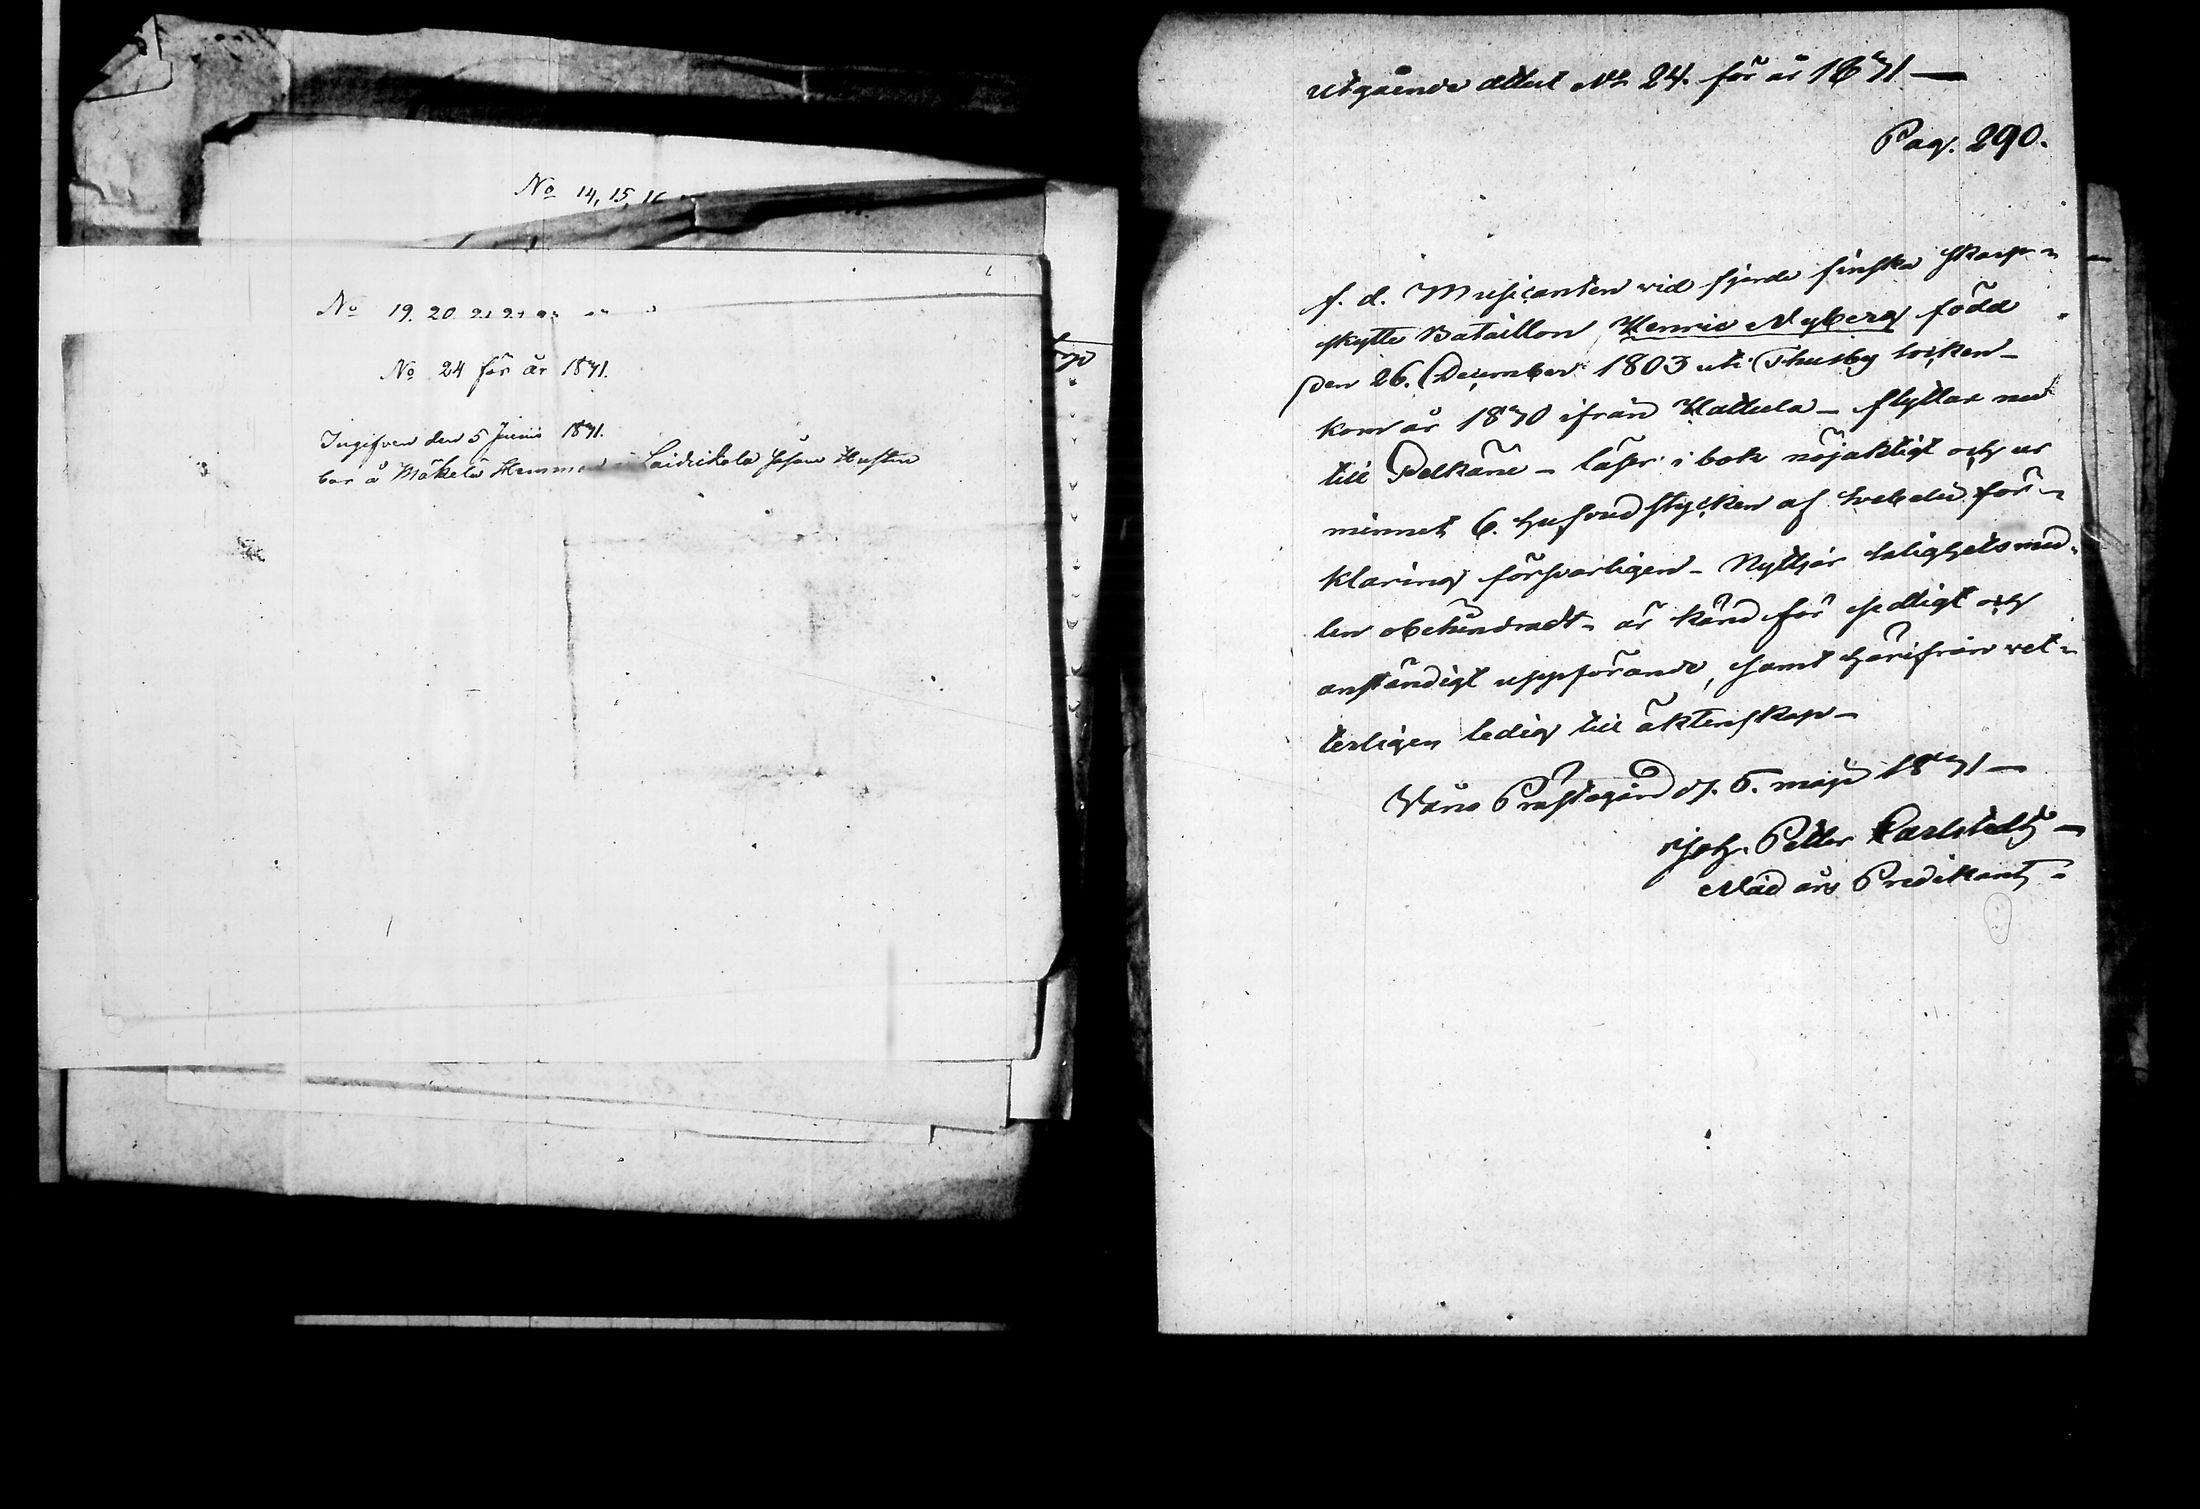 No 14, 15, 16
No 19. 20. 21
No 24 för år 1871.
Ingifven den 5 Junii 1871.
bor å Mäkelä Hemman i Laidikala
Utgående attest No 24. för år 1871 —
Pag. 290.
f. d. Musicanten vid fjerde finska skarp-
skytte Bataillon Henric Nyberg född
den 26. December 1803 uti Thusby socken -
kom år 1870 ifrån Hattula - flyttar nu
till Pelkäne - läser i bok nöjaktigt och ur
minnet 6. hufvudstycken af Svebelii för-
klaring försvarligen - Nyttjar salighetsmed-
len obehindradt - är känd för sedligt och
anständigt uppförande, samt härifrån vet-
terligen ledig till äktenskap -
Vånå Prästegård d. 5. maji 1871 —
Joh. Petter Carlstedt —
Nådårs Predikant -